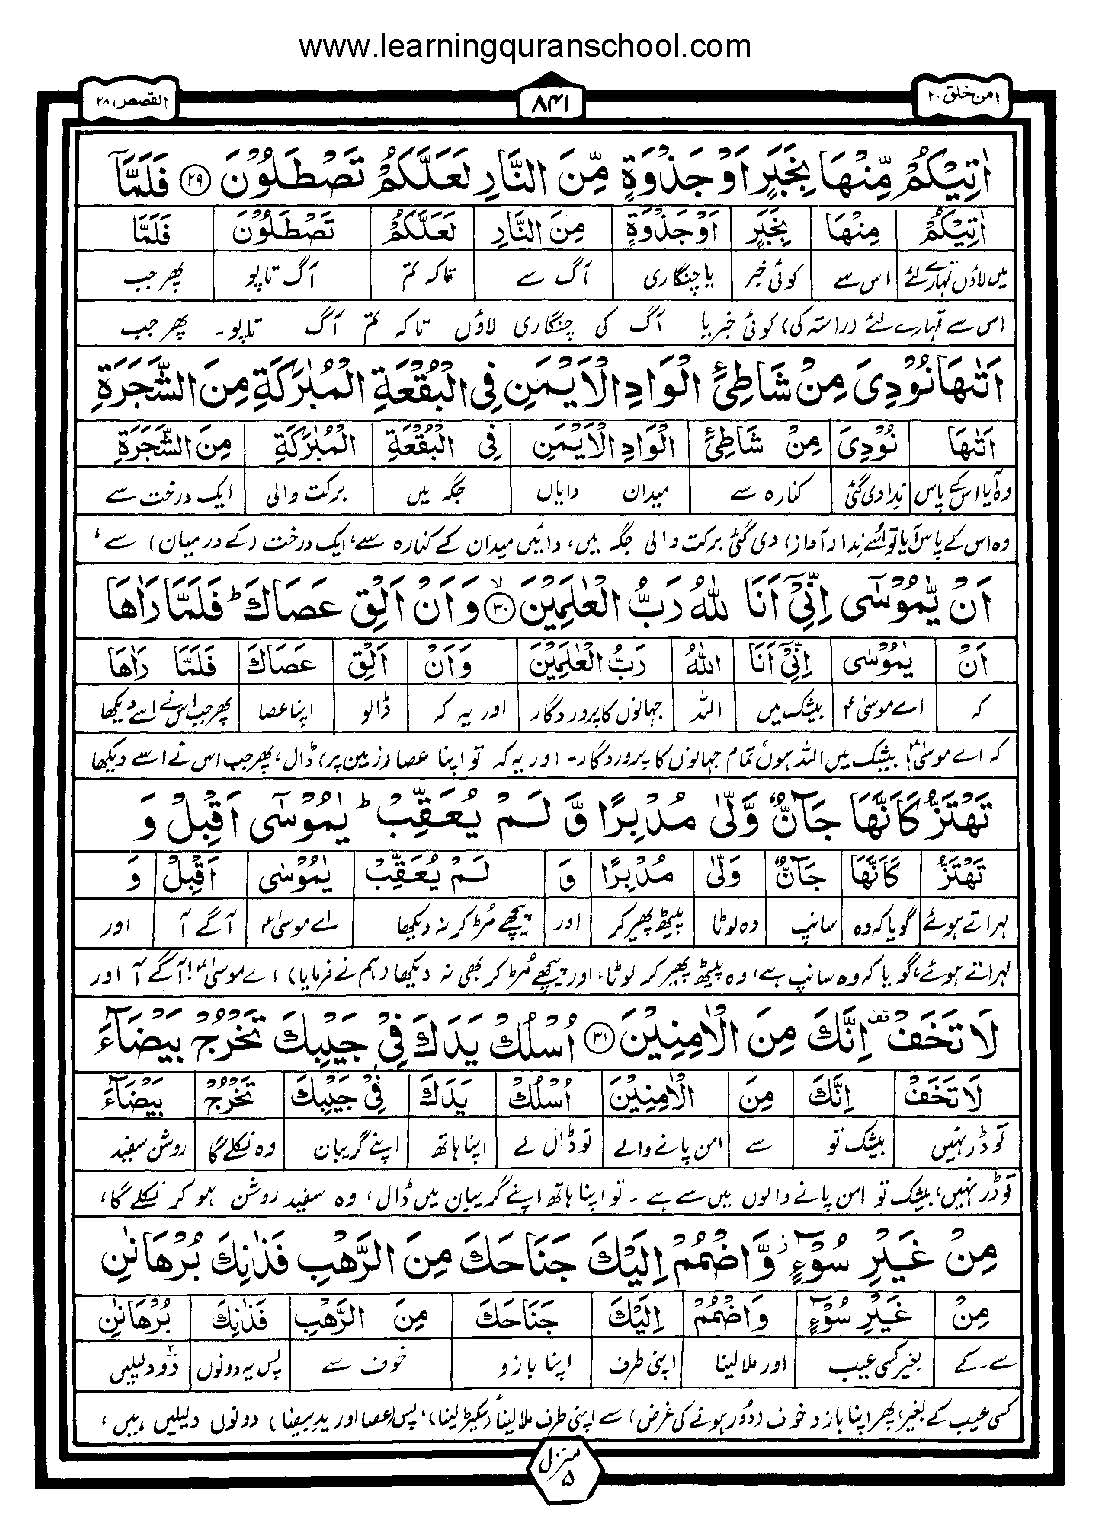 www.learningquranschool.com
امن خلق ۲۰
۸۴۱
القصص ۲۸
اٰتِیْكُمْ مِّنْهَا بِخَبَرٍ اَوْ جَذْوَةٍ مِّنَ النَّارِ لَعَلَّكُمْ تَصْطَلُوْنَ ﴿۲۹﴾ فَلَمَّاۤ
اٰتِیْكُمْ مِنْهَا بِخَبَرٍ اَوْ جَذْوَةٍ مِنَ النَّارِ لَعَلَّكُمْ تَصْطَلُوْنَ فَلَمَّا
میں لاؤں تمہارے لئے اس سے کوئی خبر یا چنگاری آگ سے تاکہ تم آگ تاپو پھر جب
اس سے تمہارے لئے (راستہ کی) کوئی خبر یا آگ کی چنگاری لاؤں تاکہ تم آگ تاپو۔ پھر جب
اَتٰىهَا نُوْدِیَ مِنْ شَاطِئِ الْوَادِ الْاَیْمَنِ فِی الْبُقْعَةِ الْمُبٰرَكَةِ مِنَ الشَّجَرَةِ
اَتٰىهَا نُوْدِیَ مِنْ شَاطِئِ الْوَادِ الْاَیْمَنِ فِی الْبُقْعَةِ الْمُبٰرَكَةِ مِنَ الشَّجَرَةِ
وہ آیا اس کے پاس ندا دی گئی کنارہ سے میدان دایاں جگہ میں برکت والی ایک درخت سے
وہ اس کے پاس آیا تو اسے ندا (آواز) دی گئی برکت والی جگہ میں، دائیں میدان کے کنارہ سے، ایک درخت (کے درمیان) سے،
اَنْ یّٰمُوْسٰۤی اِنِّیْۤ اَنَا اللّٰهُ رَبُّ الْعٰلَمِیْنَ ﴿۳۰﴾ وَ اَنْ اَلْقِ عَصَاكَ ؕ فَلَمَّا رَاٰهَا
اَنْ یٰمُوْسٰی اِنِّیْۤ اَنَا اللّٰهُ رَبُّ الْعٰلَمِیْنَ وَاَنْ اَلْقِ عَصَاكَ فَلَمَّا رَاٰهَا
کہ اے موسیٰؑ بیشک میں اللہ جہانوں کا پروردگار اور یہ کہ ڈالو اپنا عصا پھر جب اس نے اسے دیکھا
کہ اے موسیٰؑ! بیشک میں اللہ ہوں تمام جہانوں کا پروردگار۔ اور یہ کہ تو اپنا عصا (زمین پر) ڈال، پھر جب اس نے اسے دیکھا
تَهْتَزُّ كَاَنَّهَا جَآنٌّ وَّلّٰی مُدْبِرًا وَّ لَمْ یُعَقِّبْ ؕ یٰمُوْسٰۤی اَقْبِلْ وَ
تَهْتَزُّ كَاَنَّهَا جَآنٌّ وَّلّٰی مُدْبِرًا وَّ لَمْ یُعَقِّبْ یٰمُوْسٰی اَقْبِلْ وَ
لہراتے ہوئے گویا کہ وہ سانپ وہ لوٹا پیٹھ پھیر کر اور پیچھے مڑ کر نہ دیکھا اے موسیٰؑ آگے آ اور
لہراتے ہوئے، گویا کہ وہ سانپ ہے، وہ پیٹھ پھیر کر لوٹا، اور پیچھے مڑ کر بھی نہ دیکھا (ہم نے فرمایا) اے موسیٰؑ! آگے آ اور
لَا تَخَفْ ۫ اِنَّكَ مِنَ الْاٰمِنِیْنَ ﴿۳۱﴾ اُسْلُكْ یَدَكَ فِیْ جَیْبِكَ تَخْرُجْ بَیْضَآءَ
لَا تَخَفْ اِنَّكَ مِنَ الْاٰمِنِیْنَ اُسْلُكْ یَدَكَ فِیْ جَیْبِكَ تَخْرُجْ بَیْضَآءَ
تو ڈر نہیں بیشک تو سے امن پانے والے تو ڈال لے اپنا ہاتھ اپنے گریبان وہ نکلے گا روشن سفید
تو ڈر نہیں، بیشک تو امن پانے والوں میں سے ہے۔ تو اپنا ہاتھ اپنے گریبان میں ڈال، وہ سفید روشن ہو کر نکلے گا،
مِنْ غَیْرِ سُوْٓءٍ ؗ وَّ اضْمُمْ اِلَیْكَ جَنَاحَكَ مِنَ الرَّهْبِ فَذٰنِكَ بُرْهَانٰنِ
مِنْ غَیْرِ سُوْٓءٍ وَاضْمُمْ اِلَیْكَ جَنَاحَكَ مِنَ الرَّهْبِ فَذٰنِكَ بُرْهَانٰنِ
سے۔کے بغیر کسی عیب اور ملا لینا اپنی طرف اپنا بازو خوف سے پس یہ دونوں دو دلیلیں
کسی عیب کے بغیر، پھر اپنا بازو خوف (دور ہونے کی غرض) سے اپنی طرف ملا لینا (سکیڑ لینا)، پس (عصا اور ید بیضا) دونوں دلیلیں ہیں،
منزل ۵